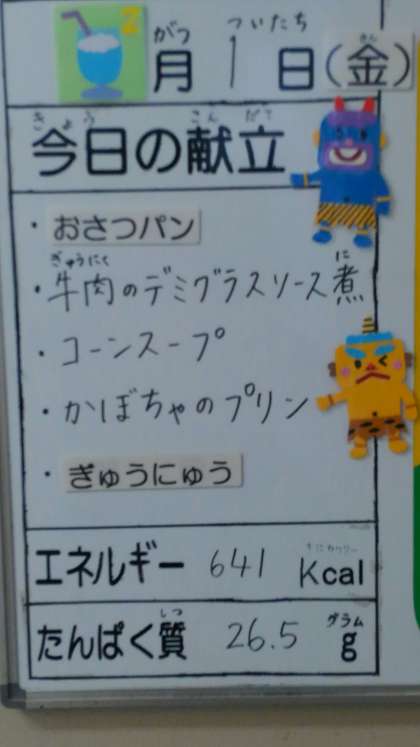 がつ ついたち きん
2月 1日(金)
きょう こんだて
今日の献立
・おさつパン
ぎゅうにく に
・牛肉のデミグラスソース煮
・コーンスープ
・かぼちゃのプリン
・ぎゅうにゅう
キロカロリー
エネルギー 641 Kcal
しつ グラム
たんぱく質 26.5 g